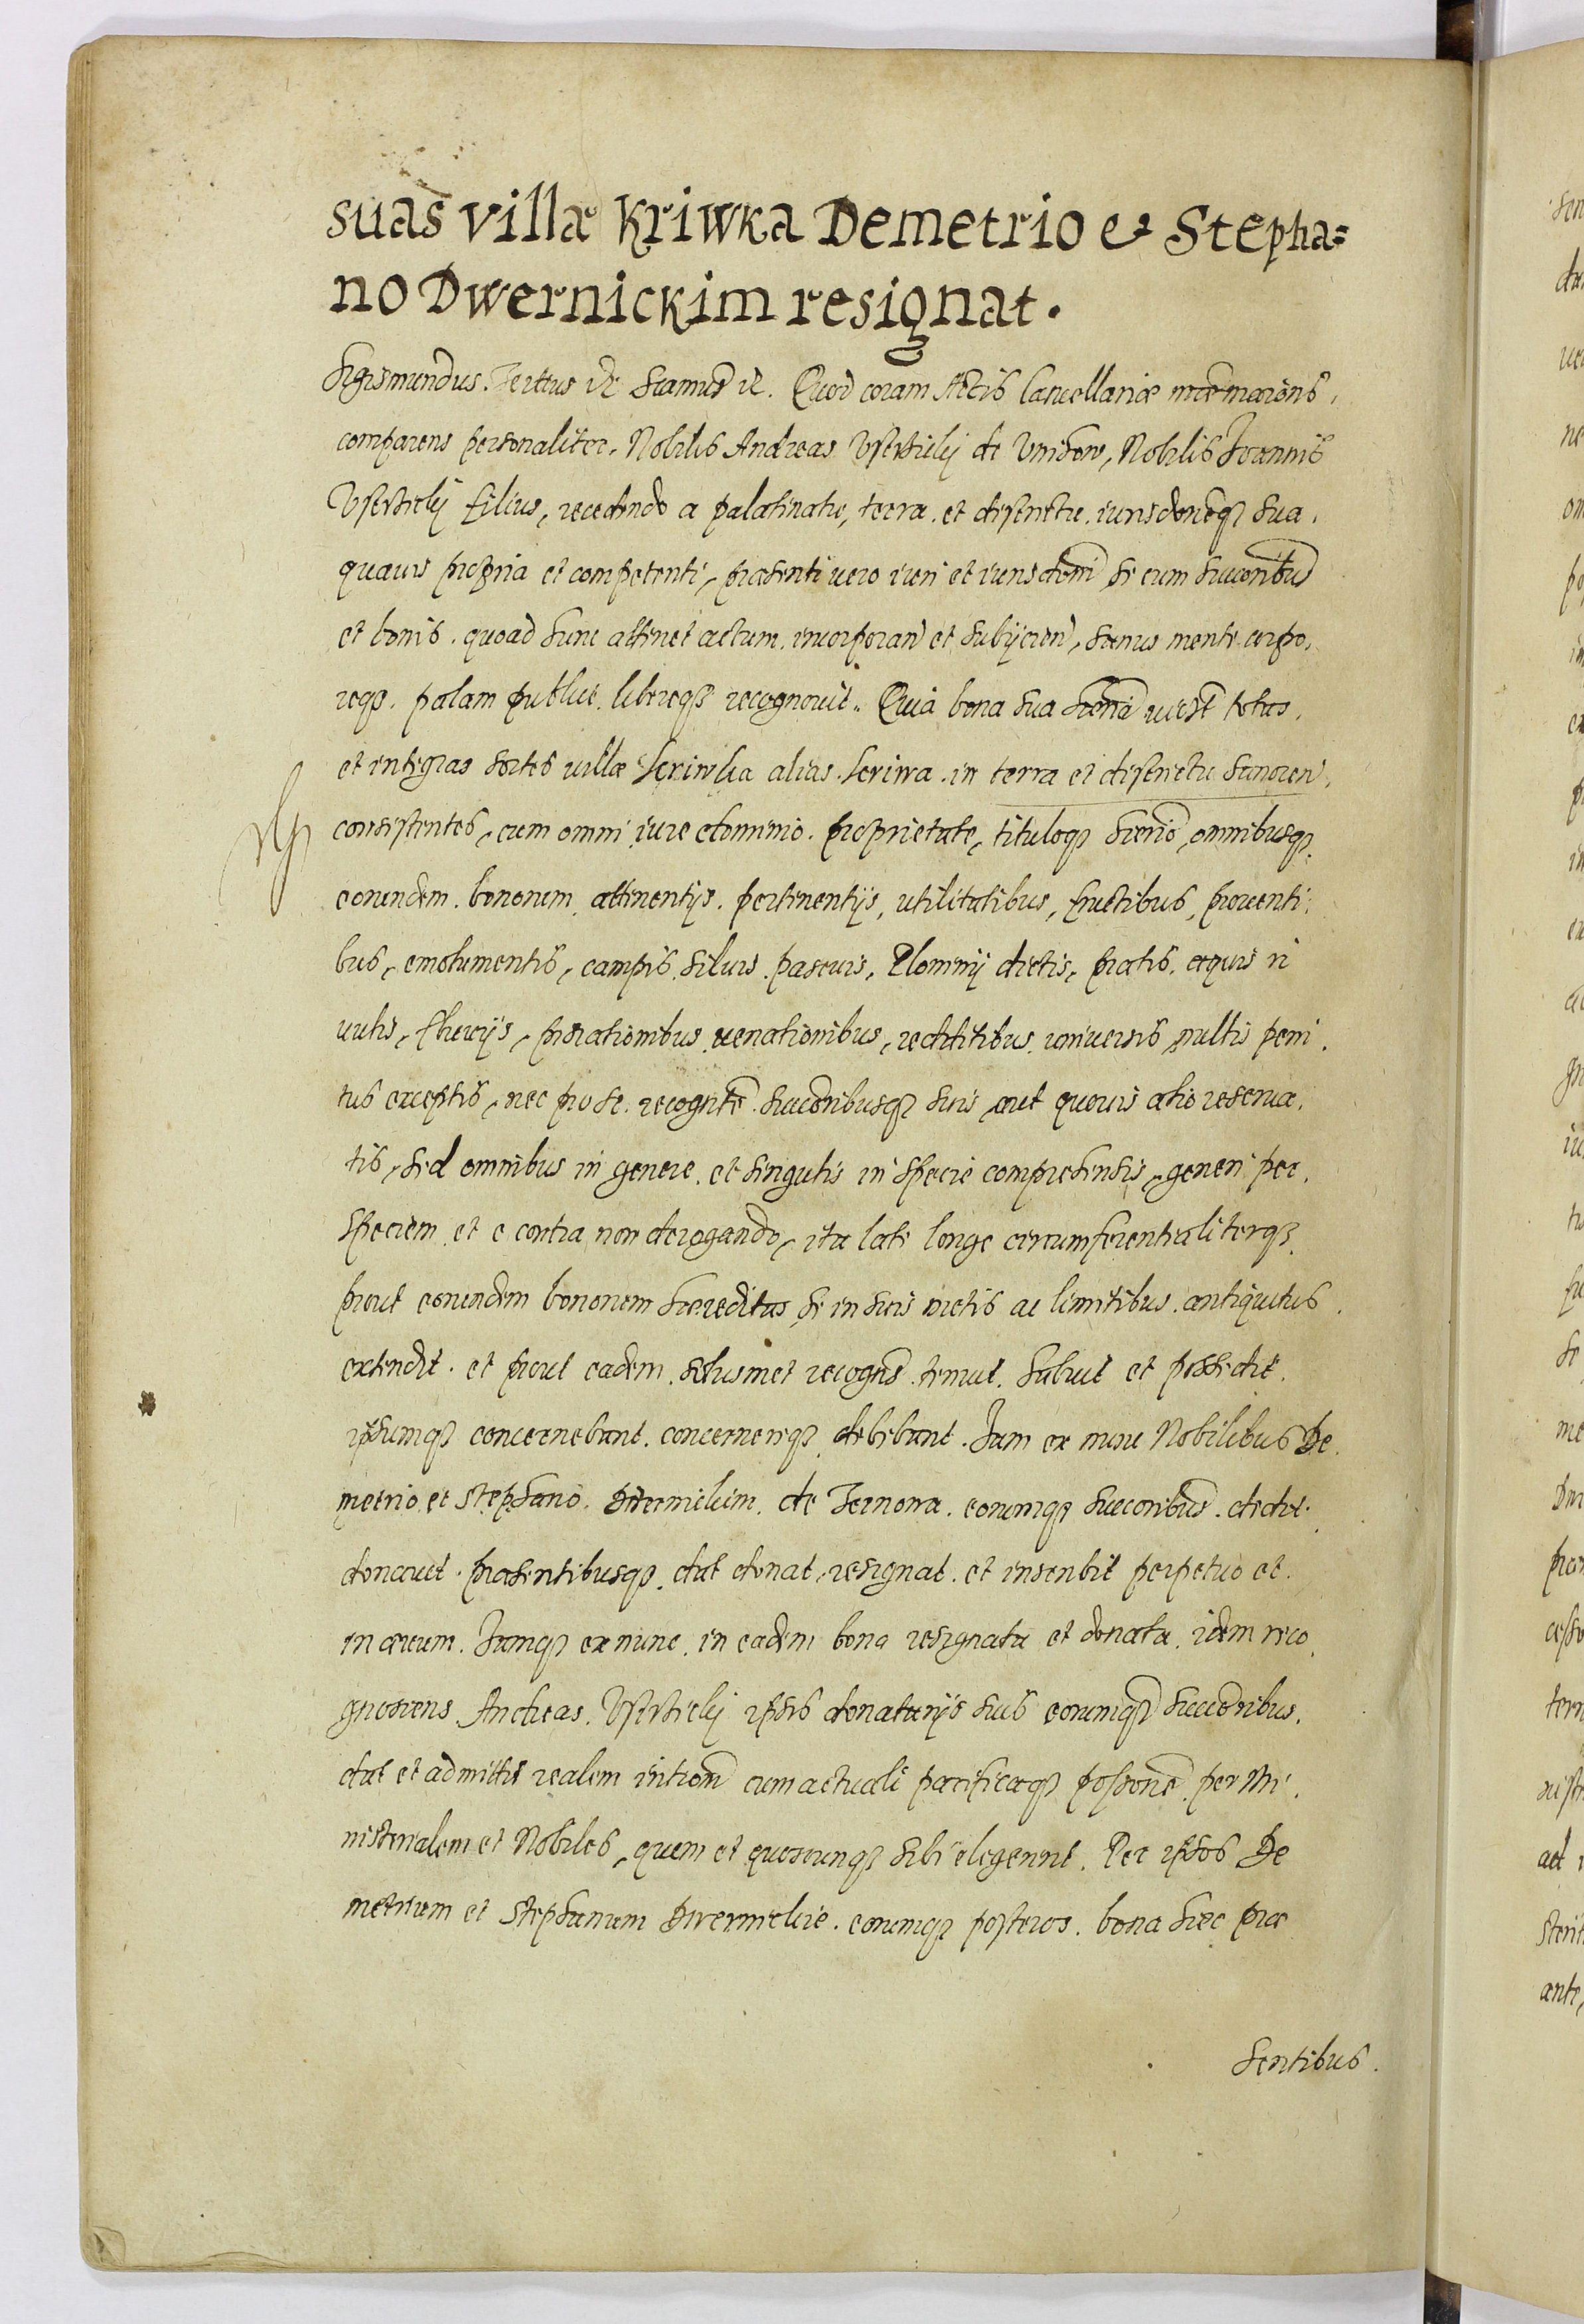 suas villæ Kriwka Demetrio et Stepha=
no Dwernickim resignat.
Sigismundus. Tertius etc Signif̃ etc. Quod coram Actis Cancellariæ
comparens personaliter, Nobilis Andreas Ustrzicky de Nobilis Joannis
Ustrzicky filius, recedendo a palatinatu, terra. et districtu. iurisdoneq3 sua.
quavis propria et competenti, præsenti vero iuri et iurisdictoni se cum succoribus
et bonis. quoad hunc attinet actum. incorporan̄ et subijcien̄, sanus mente corpo.
req3. palam publice. libereq3 recognovit. Quia bona sua totas.
et integras sortes villæ Kriwka alias. Kriwa. in terra et districtu Sanocen̄.
consistentes, cum omni iure dominio. proprietate, tituloq3 omnibusq3.
eorundem. bonorum. attinentijs. pertinentijs, utilitatibus, fructibus, proventi:
bus, emolumentis, campis. silvis. pascuis. dictis, pratis. aquis ri
vulis, fluvijs, piscationibus. venationibus, redditibus. universis nullis peni.
tus exceptis, nec pro se. recognte. succoribusq3 suis aut quovis alio reserva.
tis, sed omnibus in genere. et singulis in specie comprehensis, generi per.
speciem. et e contra non derogando, ita late longe circumferentialiterq3.
prout eorundem bonorum hæreditas se in suis metis ac limitibus. antiquitus.
extendit. et prout eadem. solusmet recogn̄s. tenuit. habuit et possedit.
ipsumq3 concernebant. concernereq3 debebant. Iam ex nunc Nobilibus De.
metrio et Stephano. Dwernickim. de Ternowa. eorumq3 succoribus. dedit.
donavit. præsentibusq3. dat donat, resignat. et inscribit perpetuo et.
in ævum. Iamq3 ex nunc. in eadem bona resignata et donata. idem reco.
gnoscens Andreas. Ustrzicky ipsis donatarijs suis eorumq3 succoribus.
dat et admittit realem introm̄ cum actuali pacificaq3 possione. per Mi.
nisterialem et Nobiles, quem et quoscunq3 sibi elegerint. Per ipsos De
metrium et Stephanum Dwernickie. eorumq3 posteros. bona hæc præ
sentibus.